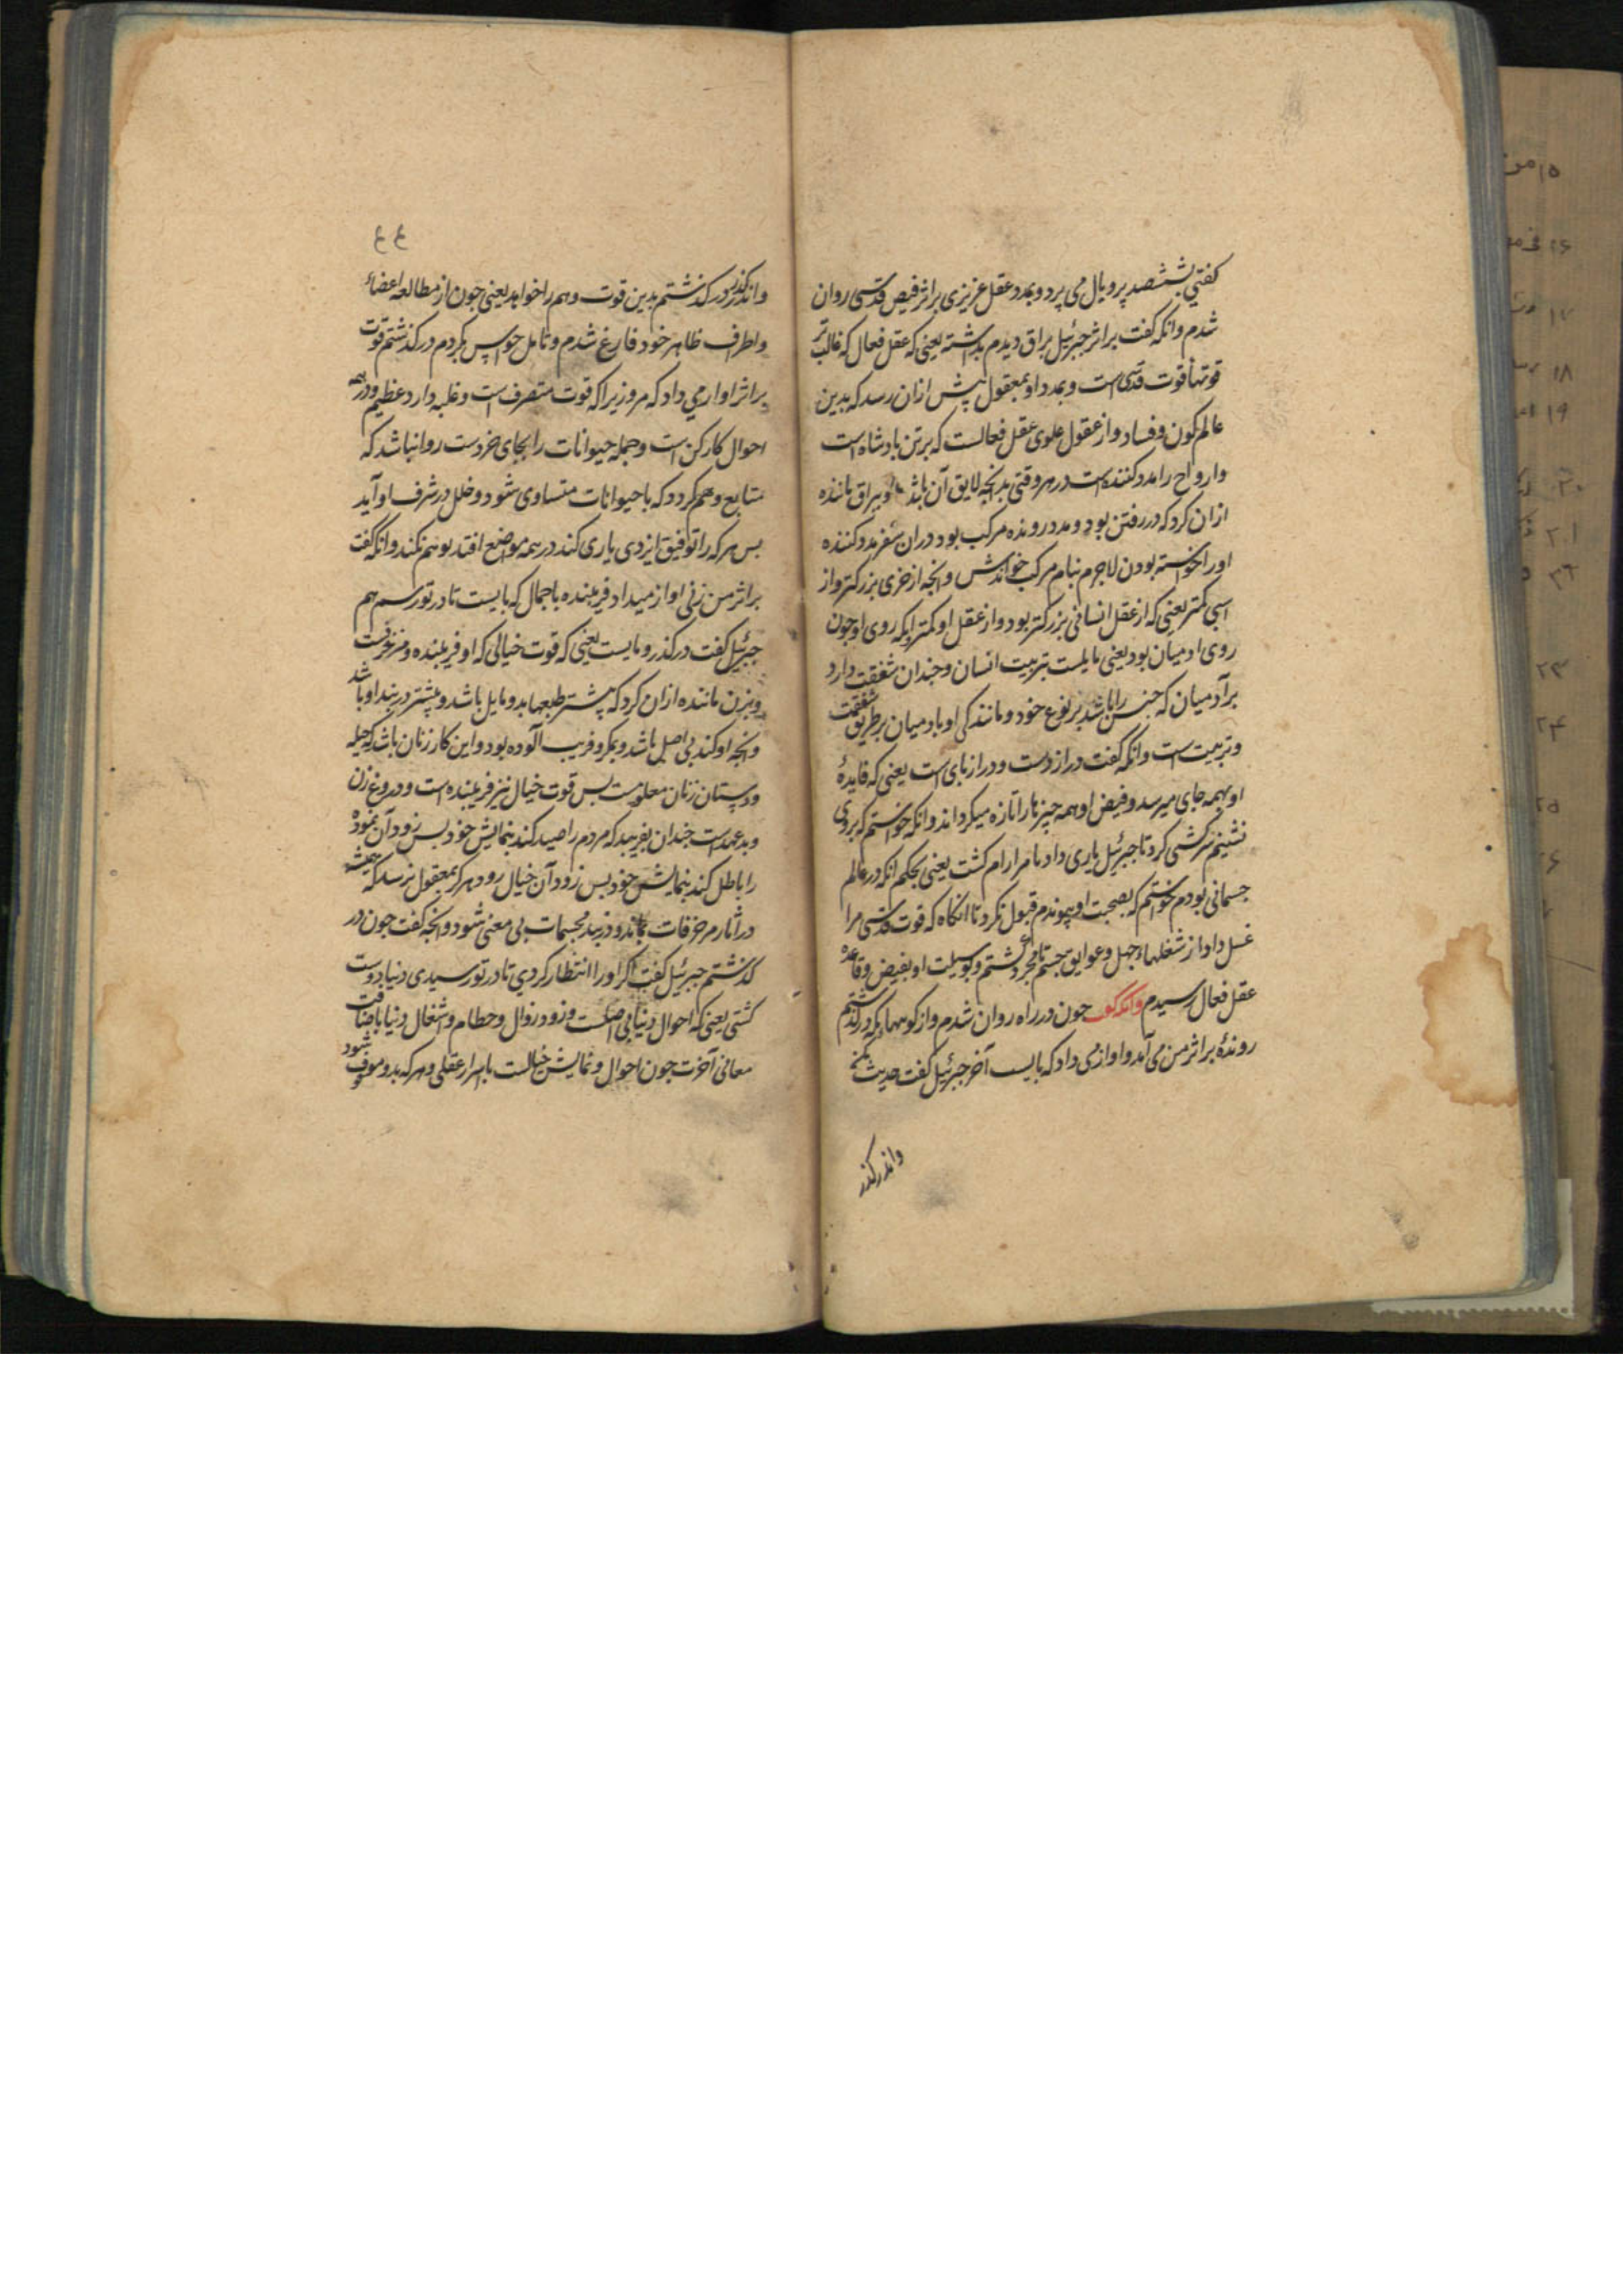 کفتی ششصد پر و بال می پرد و بمدد عقل عزیزی بر اثر فیض قدسی روان
شدم وانکه کفت بر اثر جبرئیل براق دیدم بداشته یعنی که عقل فعال که غالب تر
قوتها قوت قدسی است و بمدد او بمعقول پیش ازان رسد که بدین
عالم کون و فساد و از عقول علوی عقل فعالست که بر تن بادشاه است
و ارواح را مدد کننده است در هر وقتی بدانچه لایق آن باشد و ببراق ماننده
ازان کرد که در رفتن بود و مدد رونده مرکب بود و دران سفر مدد کننده
او را خواسته بودن لاجرم بنام مرکب خواندش وانچه از خری بزرکتر و از
اسپی کمتر یعنی که از عقل انسانی بزرکتر بود و از عقل او کمتر وانکه روی او چون
روی ادمیان بود یعنی مایلست بتربیت انسان و چندان شفقت دارد
بر آدمیان که جنس را باشد بر نوع خود و مانندکی او بادمیان بر طریق شفقت
و تربیت است وانکه کفت دراز دست و دراز پای است یعنی که فایدهٔ
او بهمه جای میرسد و فیض او همه چیزها را تازه میکرداند وانکه خواستم که بر وی
نشینم سرکشی کرد تا جبرئیل یاری داد تا مرا رام کشت یعنی بحکم انکه در عالم
جسمانی بودم خواستم که بصحبت او پیوندم قبول نکرد تا انکاه که قوت قدسی مرا
غسل داد از شغلهاء جهل و عوایق جسم تا مجرد کشتم و بوسیلت او بفیض و فایدهٔ
عقل فعال رسیدم وانکه کفت چون در راه روان شدم و از کوههاء مکه در کذشتم
روندهٔ بر اثر من می آمد و اواز می داد که بایست آخر جبرئیل کفت حدیث مکن
و اندر کذر
٤٤
و اندر کذر در کذشتم بدین قوت وهم را خواهد یعنی چون از مطالعه اعضاء
و اطراف ظاهر خود فارغ شدم و تامل حواس بکردم در کذشتم قوت
بر اثر اواز می داد که مرو زیرا که قوت متصرف است و غلبه دارد عظیم و در همه
احوال کارکن است و جمله حیوانات را بجای خردست روا نباشد که
متابع وهم کردد که با حیوانات متساوی شود و خلل در شرف او آید
بس هر که را توفیق ایزدی یاری کند در همه مواضع اقتدا بوهم نکند وانکه کفت
بر اثر من زنی اواز میداد فریبنده با جمال که بایست تا در تو رسم هم
جبرئیل کفت در کذر و مایست یعنی که قوت خیالی که او فریبنده و مزخرفست
و بزن ماننده ازان کرد که بیشتر طبعها بدو مایل باشد و بیشتر در بند او باشد
وانچه او کند بی اصل باشد و بمکر و فریب الوده بود و این کار زنان باشد که حیله
و دستان زنان معلومست بس قوت خیال نیز فریبنده است و دروغ زن
و بدعهدست چندان بفریبد که مردم را صید کند بنمایش خود بس زود آن نموده
را باطل کند بنمایش خود بس زود آن خیال رود هرکز بمعقول نرسد که همیشه
در اثار مزخرفات بماند و در بند مجسمات بی معنی شود وانچه کفت چون در
کذشتم جبرئیل کفت اکر او را انتظار کردی تا در تو رسیدی دنیا دوست
کشتی یعنی که احوال دنیا بی اصلست و زود زوال و حطام و اشغال دنیا باضافت
معانی آخرت چون احوال و نمایش خیالست با اسرار عقلی و هر که بدو موقوف شود